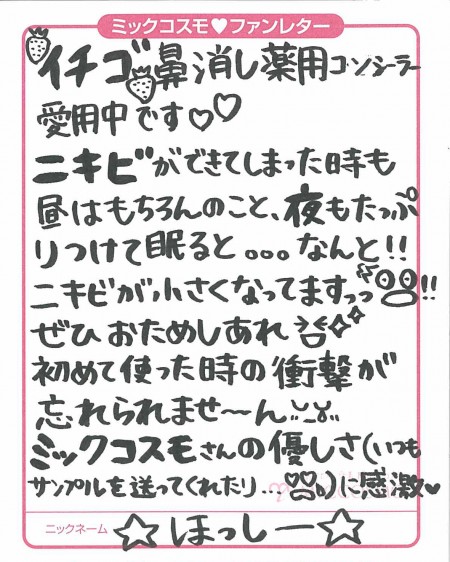 ミックコスモ♥ファンレター
イチゴ鼻消し薬用コンシーラー
愛用中です♡♡
ニキビができてしまった時も
昼はもちろんのこと、夜もたっぷ
りつけて眠ると。。。なんと!!
ニキビが小さくなってますっっ!!
ぜひおためしあれ
初めて使った時の衝撃が
忘れられませ〜ん
ミックコスモさんの優しさ(いつも
サンプルを送ってくれたり...)に感激♥
ニックネーム ☆ほっしー☆